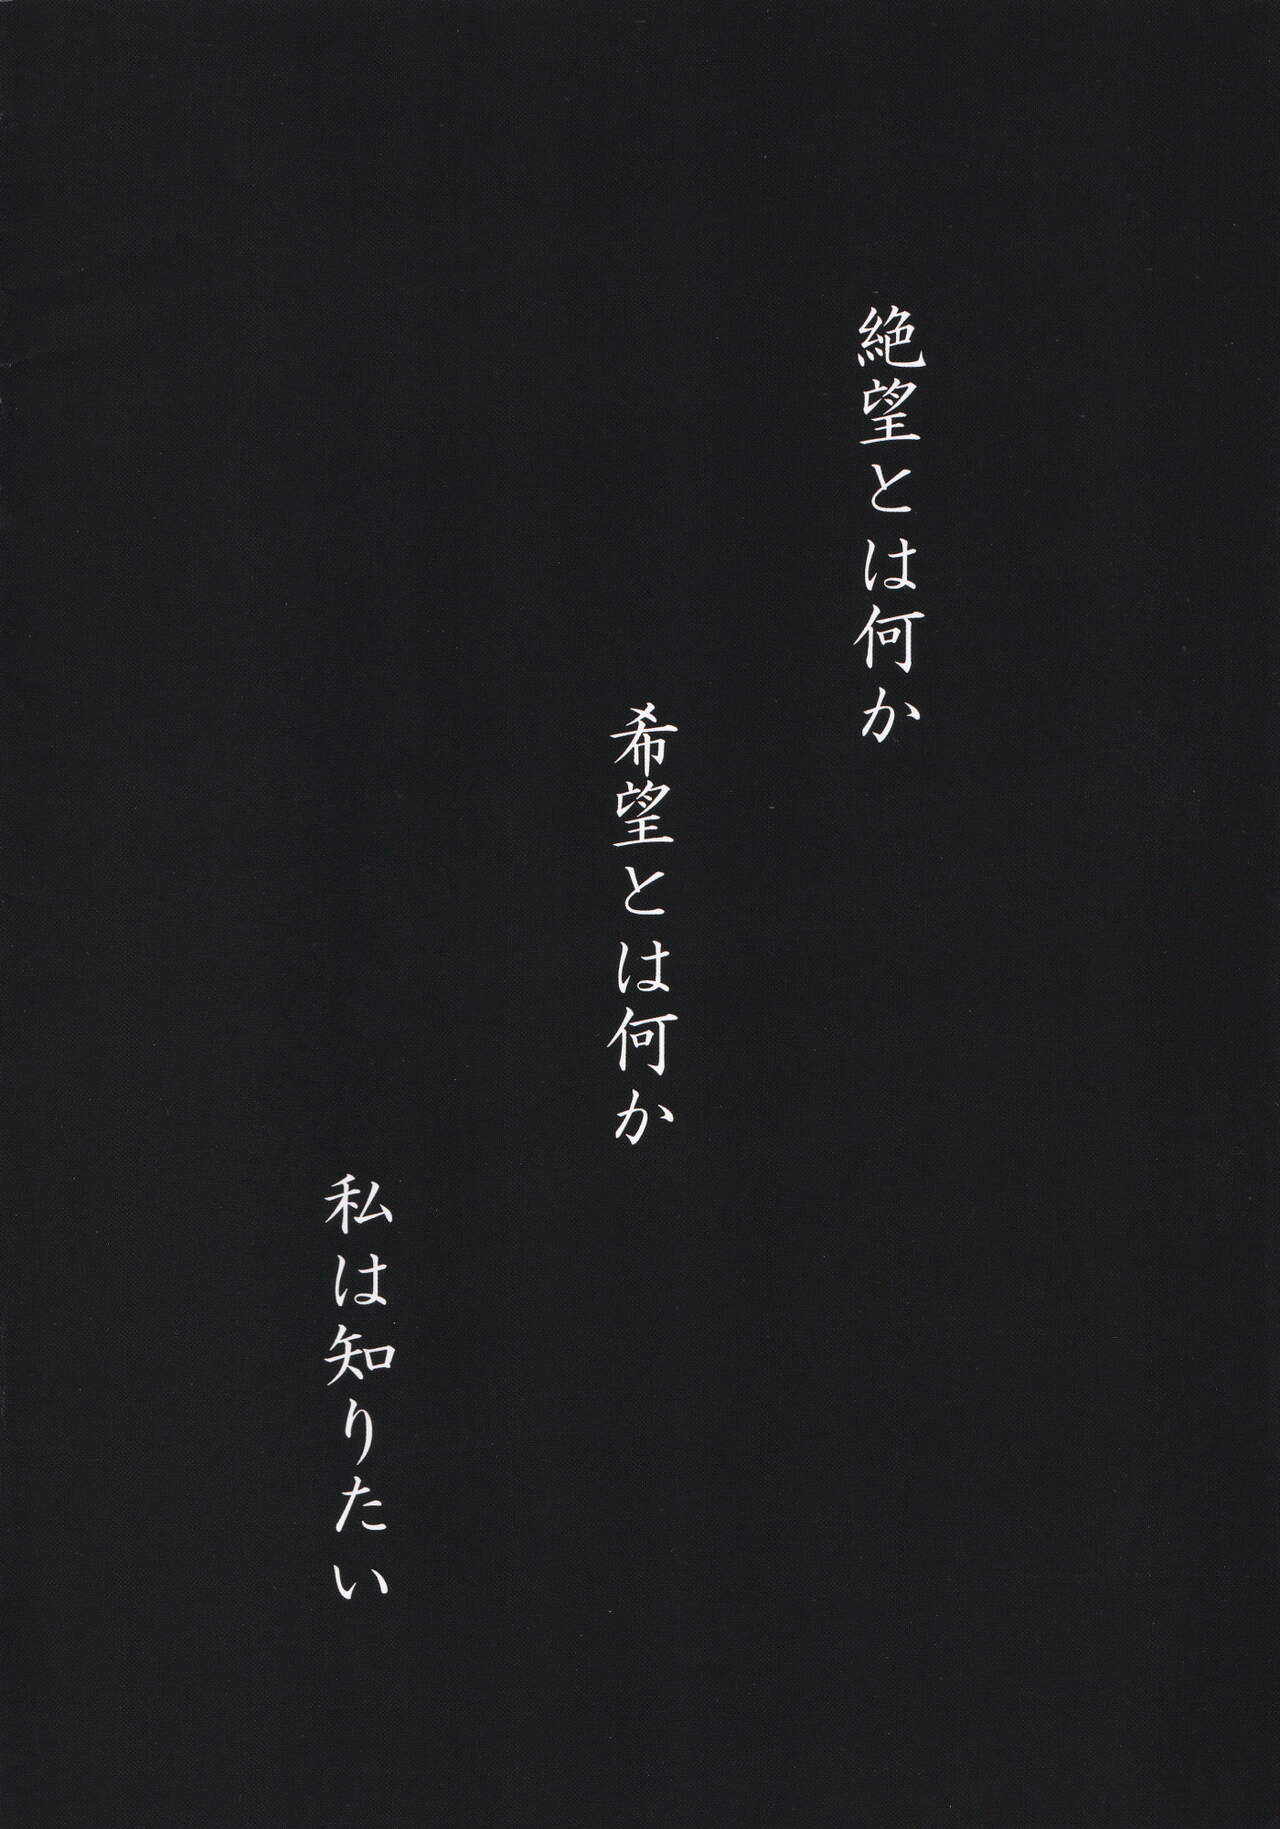 絶望とは何か
希望とは何か
私は知りたい